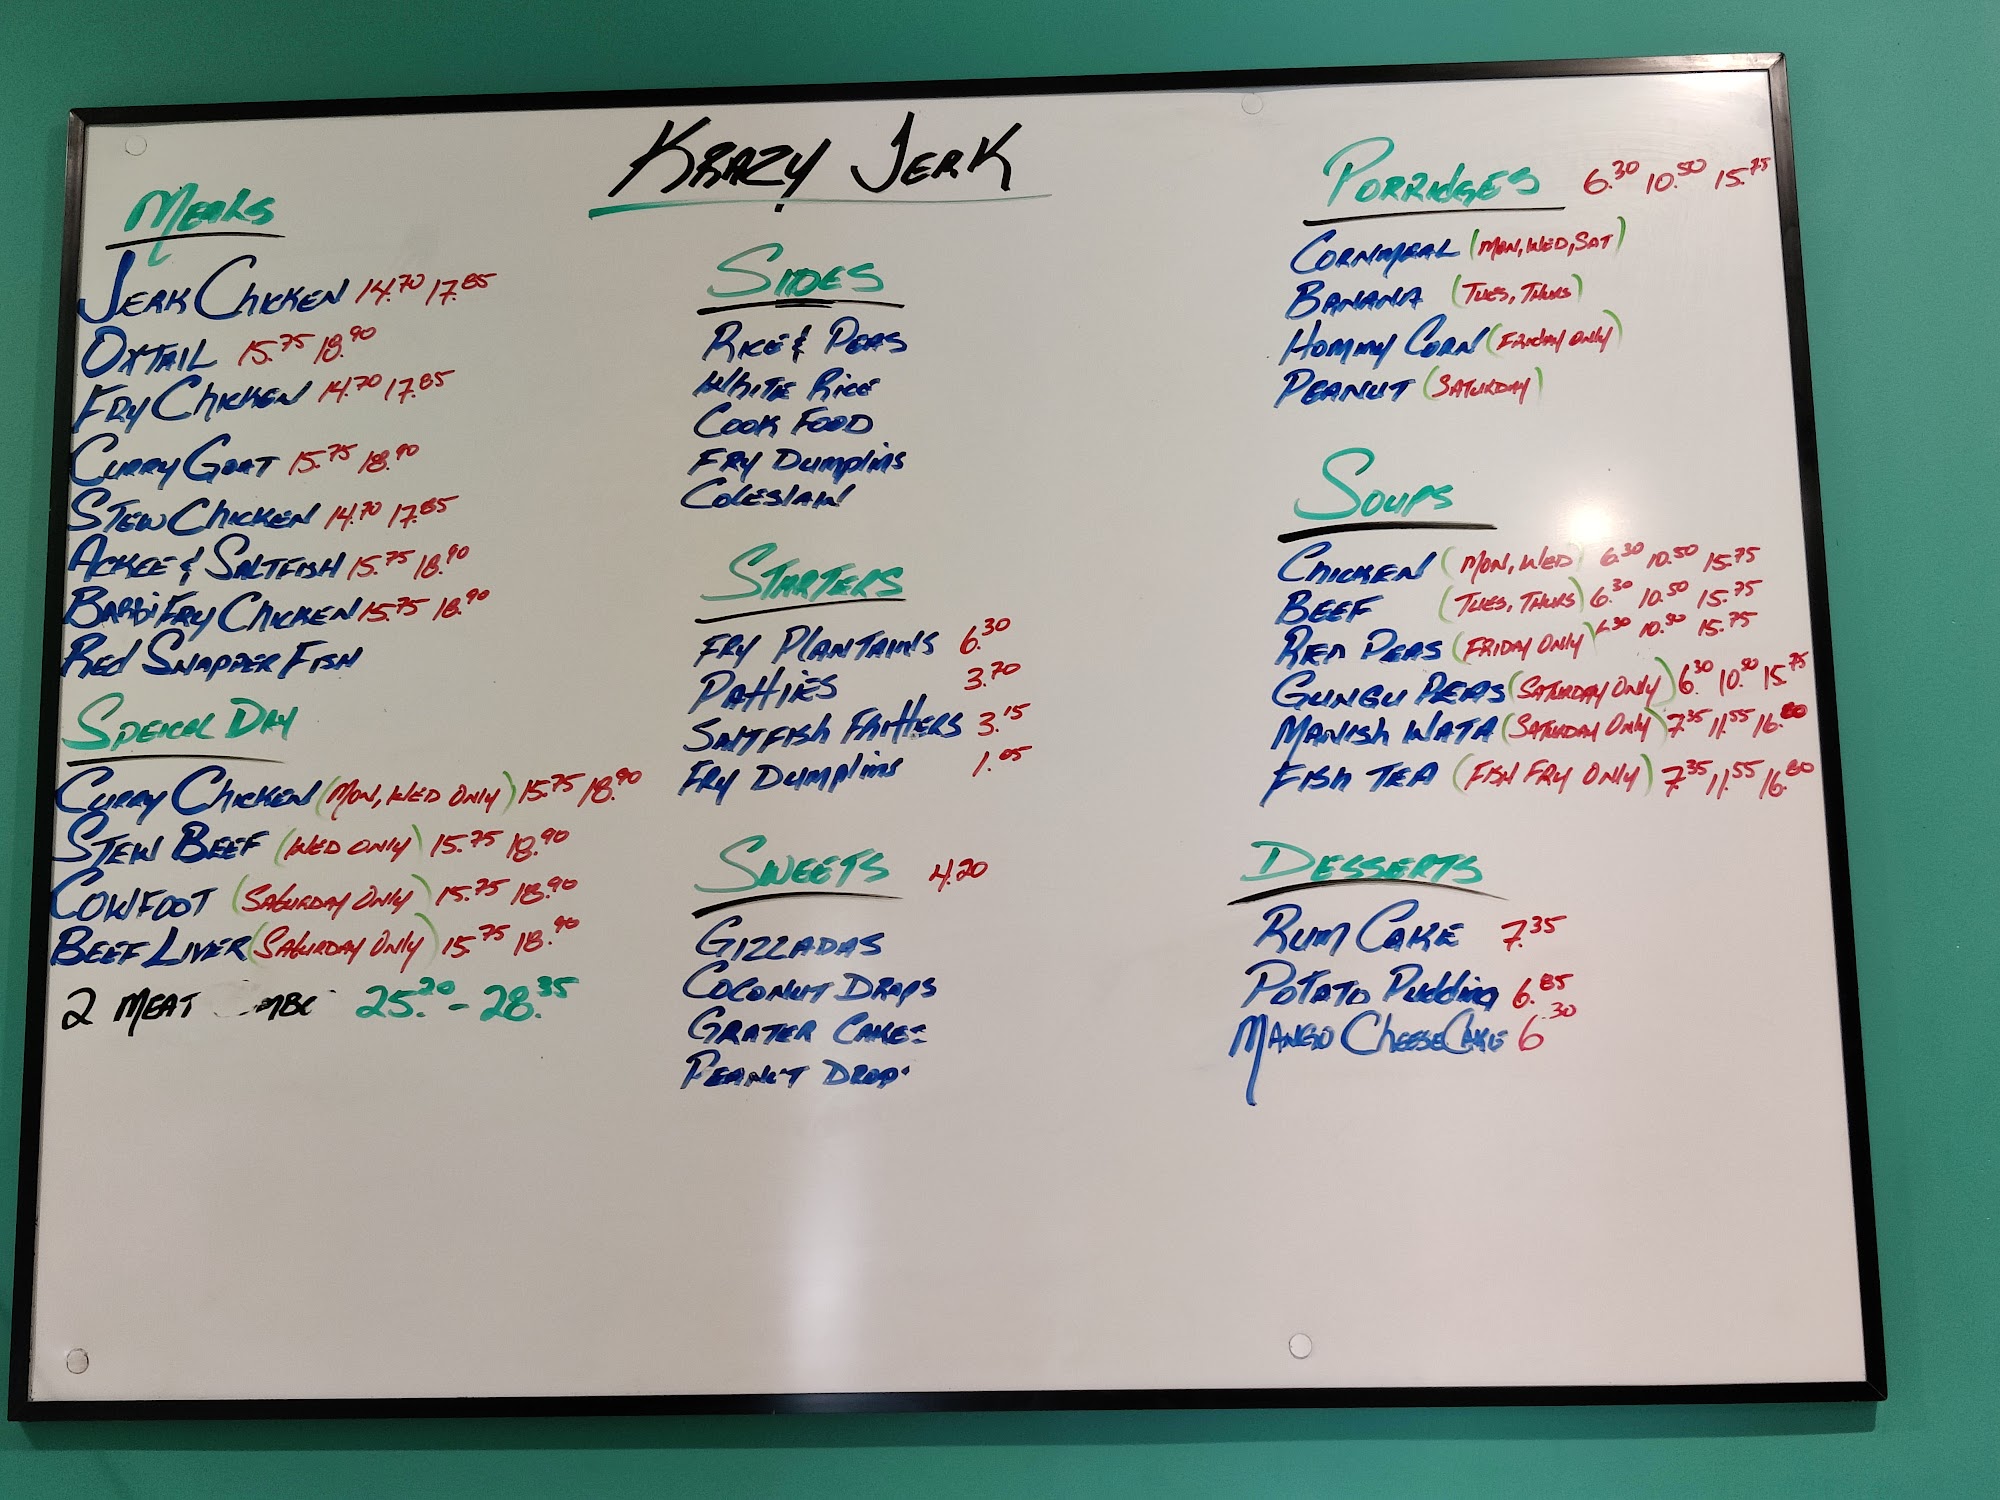 Krazy Jerk
Meals
Jerk Chicken 14.70 17.85
Oxtail 15.75 18.90
Fry Chicken 14.70 17.85
Curry Goat 15.75 18.90
Stew Chicken 14.70 17.85
Ackee & Saltfish 15.75 18.90
BarbiFry Chicken 15.75 18.90
Red Snapper Fish
Speical Day
Curry Chicken (Mon, Wed Only) 15.75 18.90
Stew Beef (Wed Only) 15.75 18.90
Cowfoot (Saturday Only) 15.75 18.90
Beef Liver (Saturday Only) 15.75 18.90
2 Meat 25.20 - 28.35
Sides
Rice & Peas
White Rice
Cook Food
Fry Dumplins
Coleslaw
Starters
Fry Plantains 6.30
Patties 3.70
Saltfish Fritters 3.15
Fry Dumplins 1.05
Sweets 4.20
Gizzadas
Coconut Drops
Grater Cake
Peanut Drop
Porridges 6.30 10.50 15.75
Cornmeal (Mon, Wed, Sat)
Banana (Tues, Thurs)
Hommy Corn (Friday Only)
Peanut (Saturday)
Soups
Chicken (Mon, Wed) 6.30 10.50 15.75
Beef (Tues, Thurs) 6.30 10.50 15.75
Red Peas (Friday Only) 6.30 10.50 15.75
Gungu Peas (Saturday Only) 6.30 10.50 15.75
Manish Wata (Saturday Only) 7.35 11.55 16.80
Fish Tea (Fish Fry Only) 7.35 11.55 16.80
Desserts
Rum Cake 7.35
Potato Pudding 6.85
Mango CheeseCake 6.30